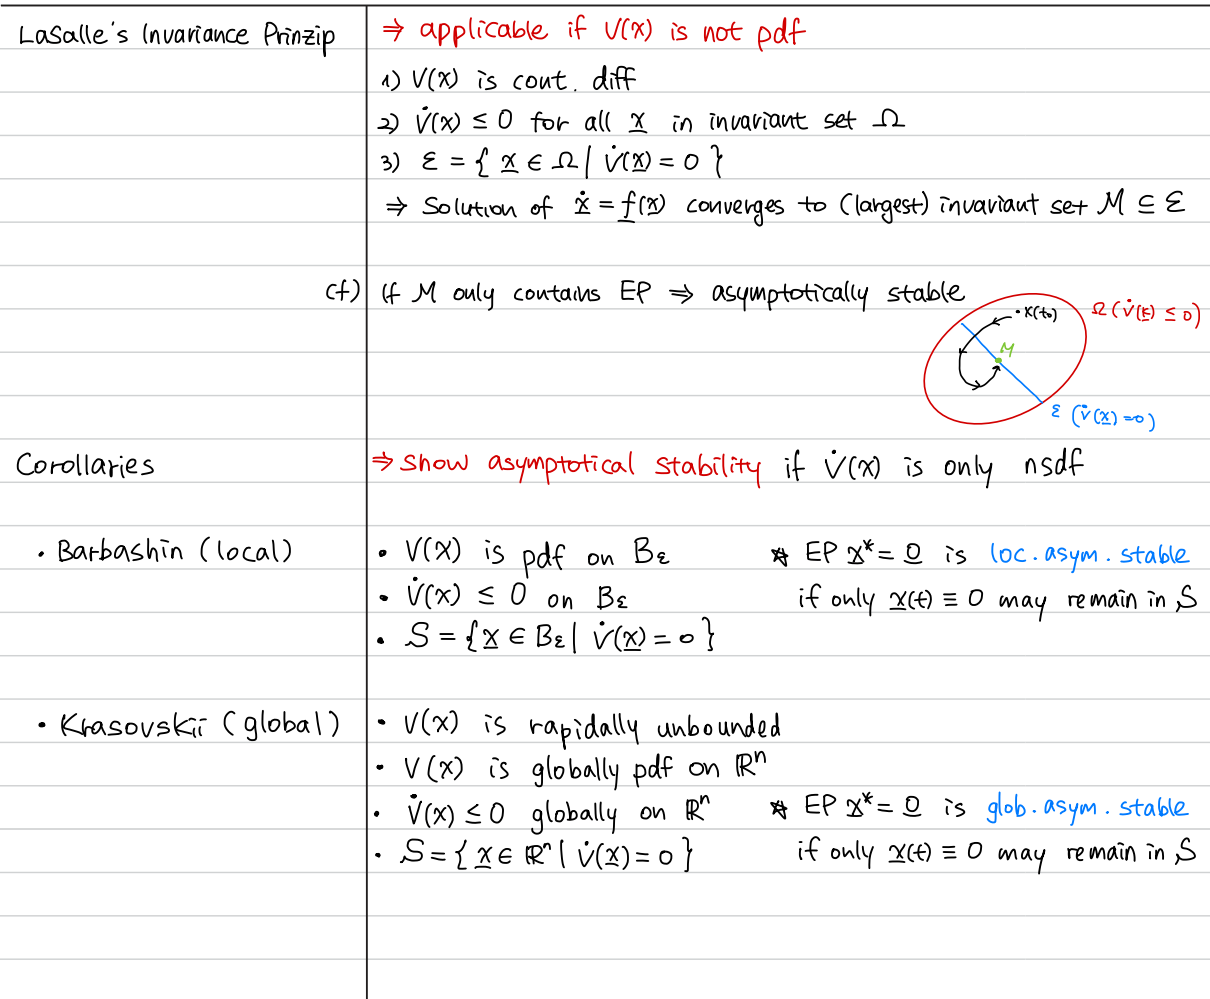 LaSalle's Invariance Prinzip
⇒ applicable if V(x) is not pdf
1) V(x) is cont. diff
2) V̇(x) ≤ 0 for all x̲ in invariant set Ω
3) ε = { x̲ ∈ Ω | V̇(x̲) = 0 }
⇒ Solution of ẋ̲ = f̲(x̲) converges to (largest) invariant set M ⊆ ε
cf) If M only contains EP ⇒ asymptotically stable
x(t₀)
Ω (V̇(x̲) ≤ 0)
M
ε (V̇(x̲) = 0)
Corollaries
⇒ Show asymptotical stability if V̇(x) is only nsdf
• Barbashin (local)
• V(x) is pdf on Bε
• V̇(x) ≤ 0 on Bε
• S = { x̲ ∈ Bε | V̇(x̲) = 0 }
* EP x̲* = 0̲ is loc. asym. stable
if only x̲(t) ≡ 0 may remain in S
• Krasovskii (global)
• V(x) is rapidally unbounded
• V(x) is globally pdf on ℝⁿ
• V̇(x) ≤ 0 globally on ℝⁿ
• S = { x̲ ∈ ℝⁿ | V̇(x̲) = 0 }
* EP x̲* = 0̲ is glob. asym. stable
if only x̲(t) ≡ 0 may remain in S